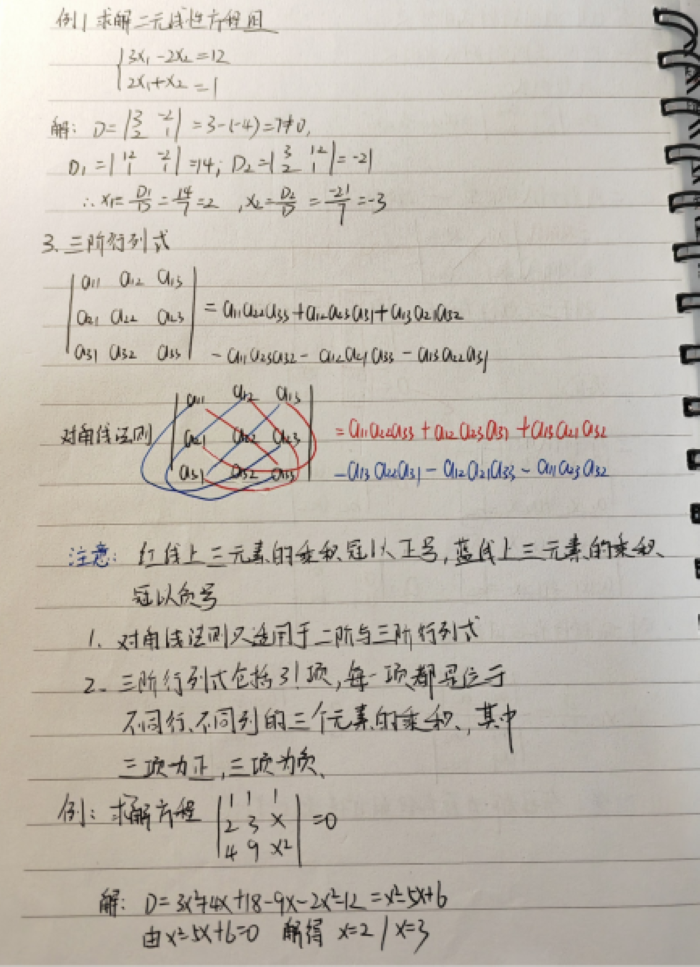 例1 求解二元线性方程组
{3x₁-2x₂=12
2x₁+x₂=1
解: D=|3 -2; 2 1|=3-(-4)=7≠0,
D₁=|12 -2; 1 1|=14; D₂=|3 12; 2 1|=-21
∴x₁=D₁/D=14/7=2 ,x₂=D₂/D=-21/7=-3
3、三阶行列式
|a₁₁ a₁₂ a₁₃|
|a₂₁ a₂₂ a₂₃| =a₁₁a₂₂a₃₃+a₁₂a₂₃a₃₁+a₁₃a₂₁a₃₂
|a₃₁ a₃₂ a₃₃| -a₁₁a₂₃a₃₂-a₁₂a₂₁a₃₃-a₁₃a₂₂a₃₁
|a₁₁ a₁₂ a₁₃|
对角线法则 |a₂₁ a₂₂ a₂₃| =a₁₁a₂₂a₃₃+a₁₂a₂₃a₃₁+a₁₃a₂₁a₃₂
|a₃₁ a₃₂ a₃₃| -a₁₃a₂₂a₃₁-a₁₂a₂₁a₃₃-a₁₁a₂₃a₃₂
注意: 红线上三元素的乘积冠以正号,蓝线上三元素的乘积、
冠以负号
1、对角线法则只适用于二阶与三阶行列式
2、三阶行列式包括3!项,每一项都是位于
不同行、不同列的三个元素的乘积、,其中
三项为正,三项为负、
例: 求解方程 |1 1 1; 2 3 x; 4 9 x²|=0
解: D=3x²+4x+18-9x-2x²-12=x²-5x+6
由x²-5x+6=0 解得 x=2 / x=3